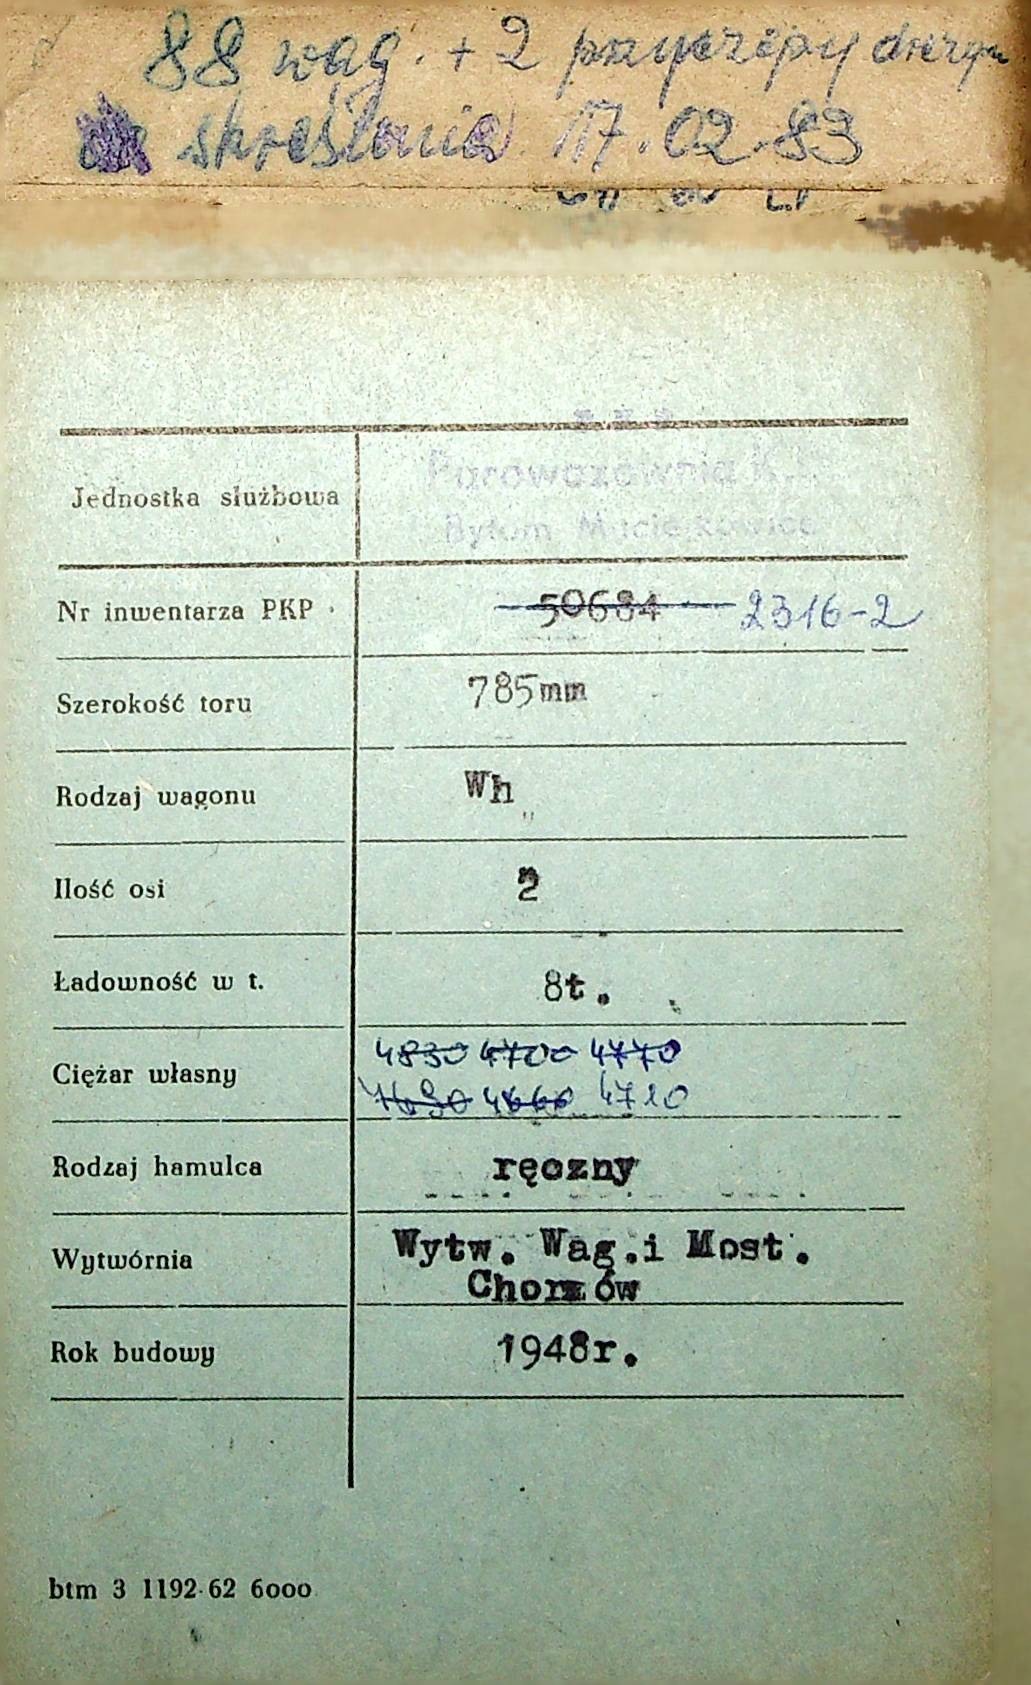 88 wag. + 2 przyczepy drezyn
skreślenie 17.02.83
Jednostka służbowa
Parowozownia K.
Bytom Maciejkowice
Nr inwentarza PKP 50684 2316-2
Szerokość toru 785mm
Rodzaj wagonu Wh
Ilość osi 2
Ładowność w t. 8t.
Ciężar własny 4830 4700 4770
4660 4710
Rodzaj hamulca ręczny
Wytwórnia Wytw. Wag.i Most.
Chorzów
Rok budowy 1948r.
btm 3 1192-62 6000